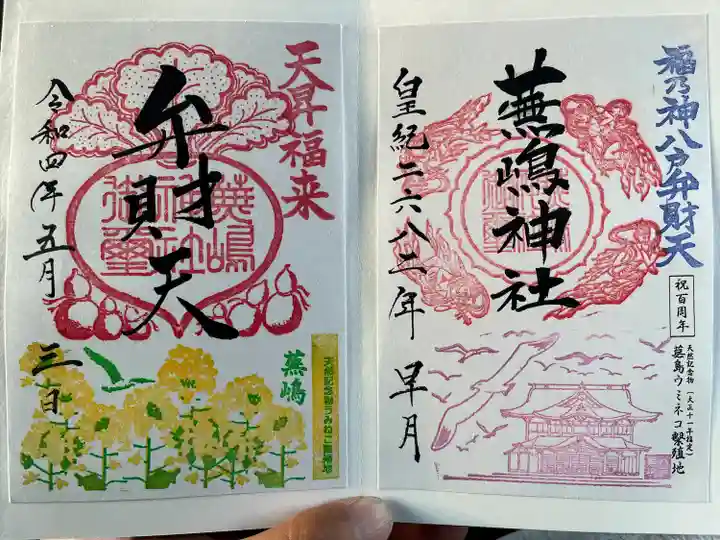 福乃神八戸弁財天
祝百周年
天然記念物(大正十一年指定)
蕪島ウミネコ繁殖地
蕪嶋神社
皇紀二六八二年
早月
天昇福来
弁財天
蕪嶋神社御璽
令和四年五月
三日
蕪嶋